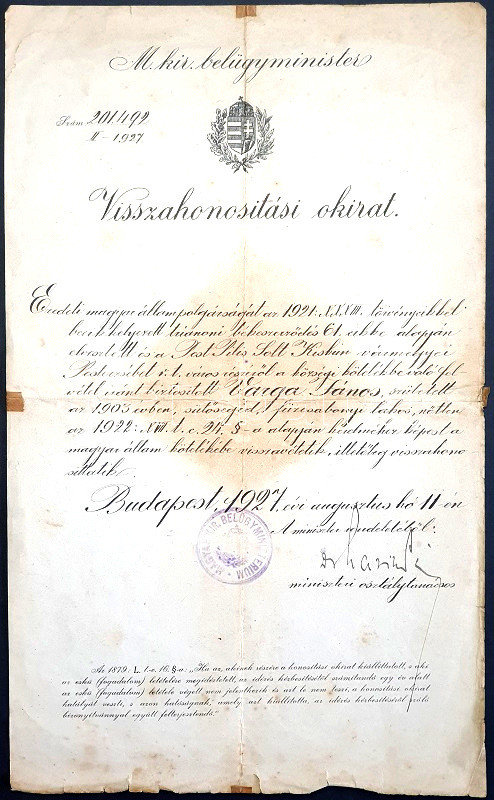 M. kir. belügyminister
Szám 201.492
III - 1927
Visszahonositási okirat.
Eredeti magyar állampolgárságát az 1921: XXXIII. törvénycikkel
becikkelyezett trianoni békeszerződés 61. cikke alapján
elvesztett és a Pest Pilis Solt Kiskun vármegyei
Pesterzsébet r.t. város részéről a községi kötelékbe való fel-
vétel iránt biztosított Varga János, született
az 1903 évben, sütősegéd, füzesabonyi lakos, nőtlen
az 1922: XVII. t. c. 24. §-a alapján kérelméhez képest a
magyar állam kötelékébe visszavétetik, illetőleg visszahono
síttatik.
Budapest, 1927. évi augusztus hó 11-én
A miniszter rendeletéből:
miniszteri osztálytanácsos
MAGYAR KIR. BELÜGYMINISZTERIUM
Az 1879: L. t.-c. 16. §-a: „Ha az, akinek részére a honositási okirat kiállittatott, s aki
az eskü (fogadalom) letételére megidéztetett, az idézés kézbesítésétől számítandó egy év alatt
az eskü (fogadalom) letétele végett nem jelentkezik és azt le nem teszi, a honositási okirat
hatályát veszti, s azon hatóságnak, amely azt kiállította, az idézés kézbesítéséről szóló
bizonyítvánnyal együtt felterjesztendő.“